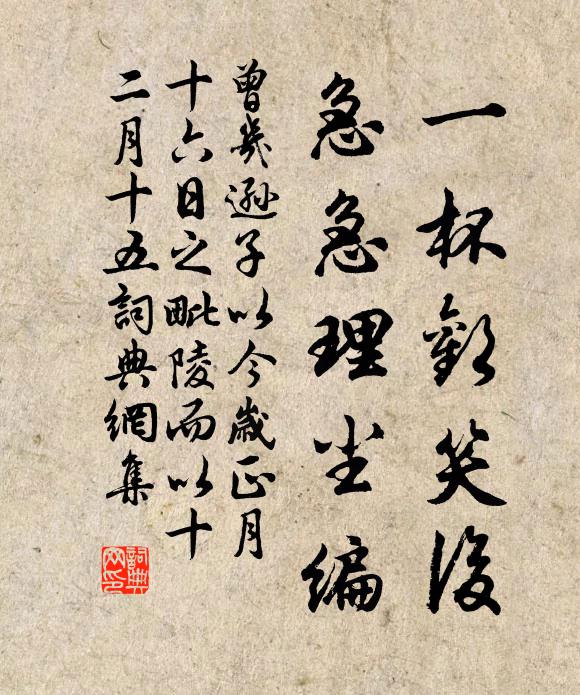 一杯歡笑後
急急理尘编
曾幾遜子以今歲正月
十六日之毗陵而以十
二月十五詞典網集
詞典网印